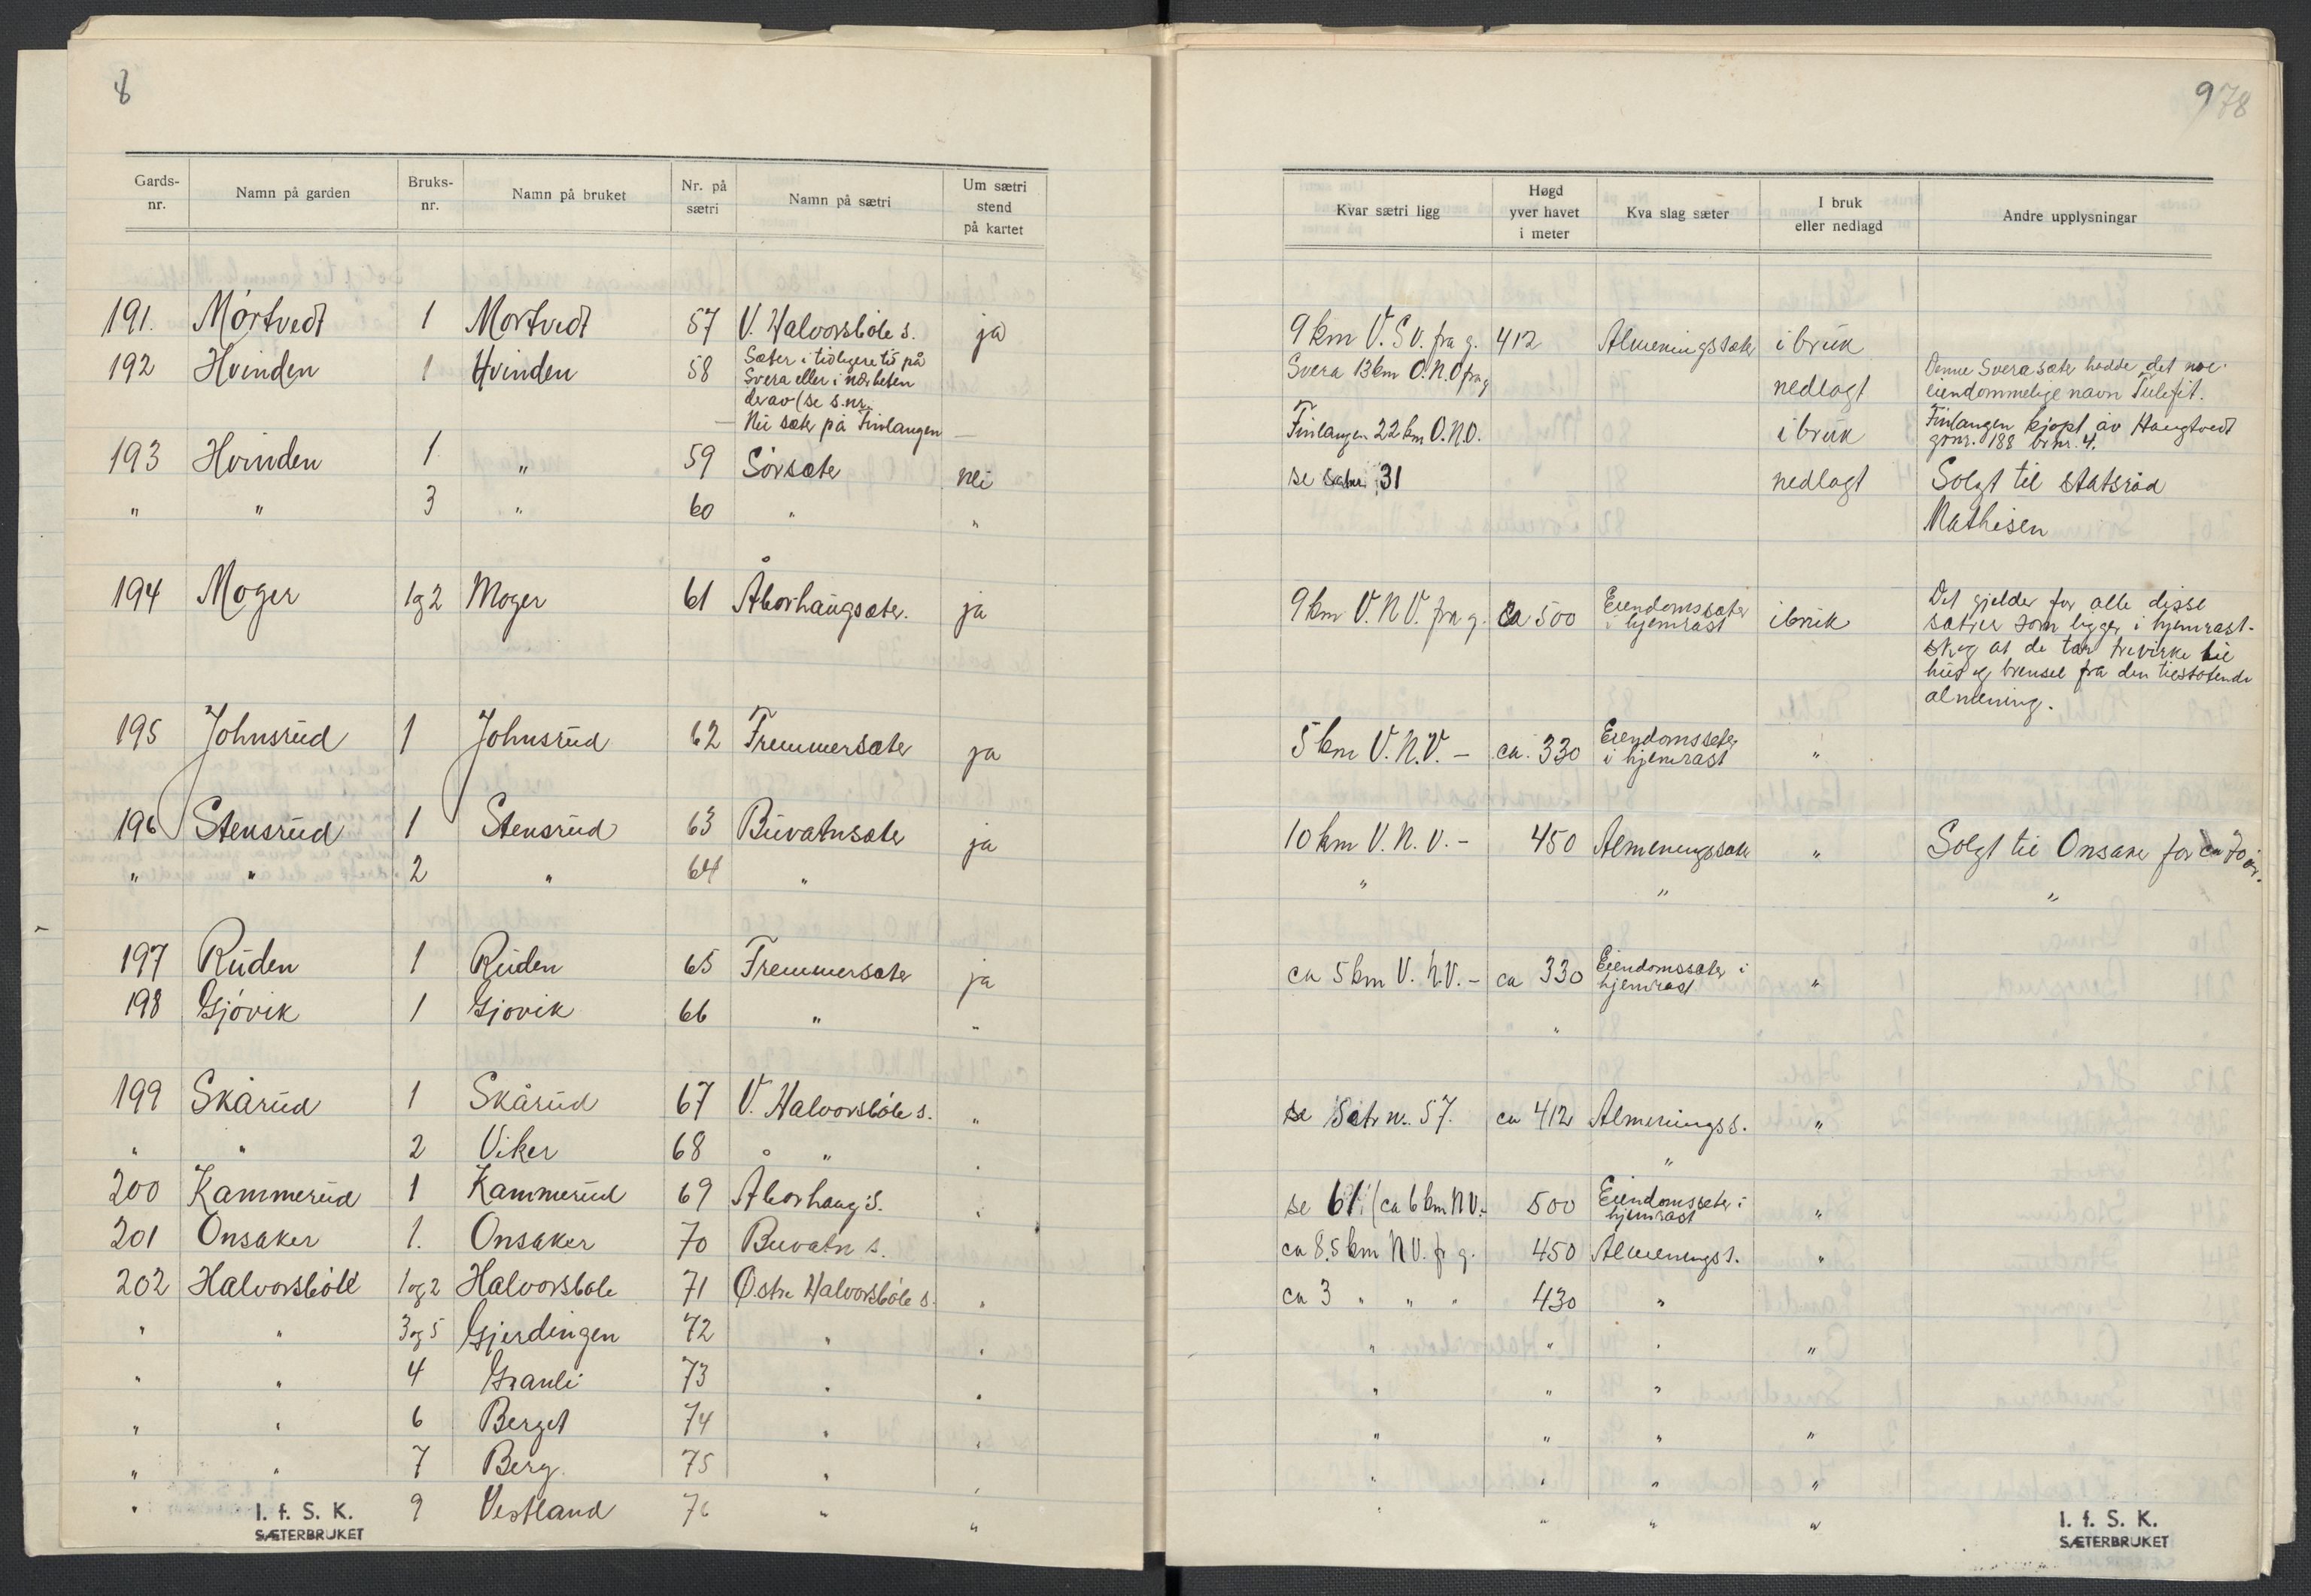 8
Gards-nr. Namn på garden Bruks-nr. Namn på bruket Nr. på sætri Namn på sætri Um sætri stend på kartet
191. Mørtvedt 1 Mørtvedt 57 V. Halvorsbøle s. ja
192 Hvinden 1 Hvinden 58 Sæter i tidligere tid på
Svera eller i nærheten
derav (se s.nr.
— Nu sæter på Finlangen —
193 Hvinden 1 " 59 Sørsæter nei
" " 3 " 60 " "
194 Moger 1 og 2 Moger 61 Åborhaugsæter. ja
195 Johnsrud 1 Johnsrud 62 Fremmersæter ja
196 Stensrud 1 Stensrud 63 Buvatnsæter ja
" " 2 " 64 "
197 Ruden 1 Ruden 65 Fremmersæter ja
198 Gjøvik 1 Gjøvik 66 " "
199 Skårud 1 Skårud 67 V. Halvorsbøle s. "
" " 2 Viker 68 " "
200 Kammerud 1 Kammerud 69 Åborhaug s. "
201 Onsaker 1. Onsaker 70 Buvatn s.
202 Halvorsbøle 1 og 2 Halvorsbøle 71 Østre Halvorsbøle s. "
" " 3 og 5 Gjerdingen 72 " "
" " 4 Granli 73 " "
" " 6 Berget 74 " "
" " 7 Berg. 75 " "
" 9 Vestland 76 " "
I. f. S. K.
SÆTERBRUKET
9 78
Kvar sætri ligg Høgd yver havet i meter Kva slag sæter I bruk eller nedlagd Andre upplysningar
9 km V.S.V. fra g. 412 Almeningssæter i bruk
Svera 13 km O.N.O fra g nedlagt Denne Sverasæter hadde det noe
eiendommelige navn Tulefit.
Finlangen 22 km O.N.O. i bruk Finlangen kjøpt av Haugtvedt
gdnr. 188 brnr. 4.
se sæter 31 nedlagt Solgt til statsråd
Mathisen
9 km V.N.V. fra g. ca 500 Eiendomssæter i hjemrast i bruk Det gjelder for alle disse
sætrer som ligger i hjemrast-
skog at de tar trevirke til
hus og brensel fra den tilstøtende
almening.
5 km V.N.V. — ca. 330 Eiendomssæter i hjemrast "
10 km V.N.V. - 450 Almeningssæter " Solgt til Onsaker for ca 70 år.
" " "
ca 5 km V.N.V. - ca 330 Eiendomssæter i hjemrast "
"
se Sæter nr. 57. ca 412 Almenings s. "
"
se 61. (ca 6 km NV.- 500 Eiendomssæter i hjemrast "
ca 8.5 km NV. fr g. 450 Almenings s. "
ca 3 " " " 430 "
" " " "
" " "
" " " "
" " " "
" " " "
I. f. S. K.
SÆTERBRUKET